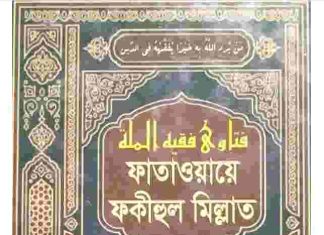 مَنْ يُرِدِ اللهُ بِهٖ خَيْرًا يُفَقِّهْهُ فِى الدِّيْنِ
فتاوى فقيه الملة
ফাতাওয়ায়ে
ফকীহুল মিল্লাত